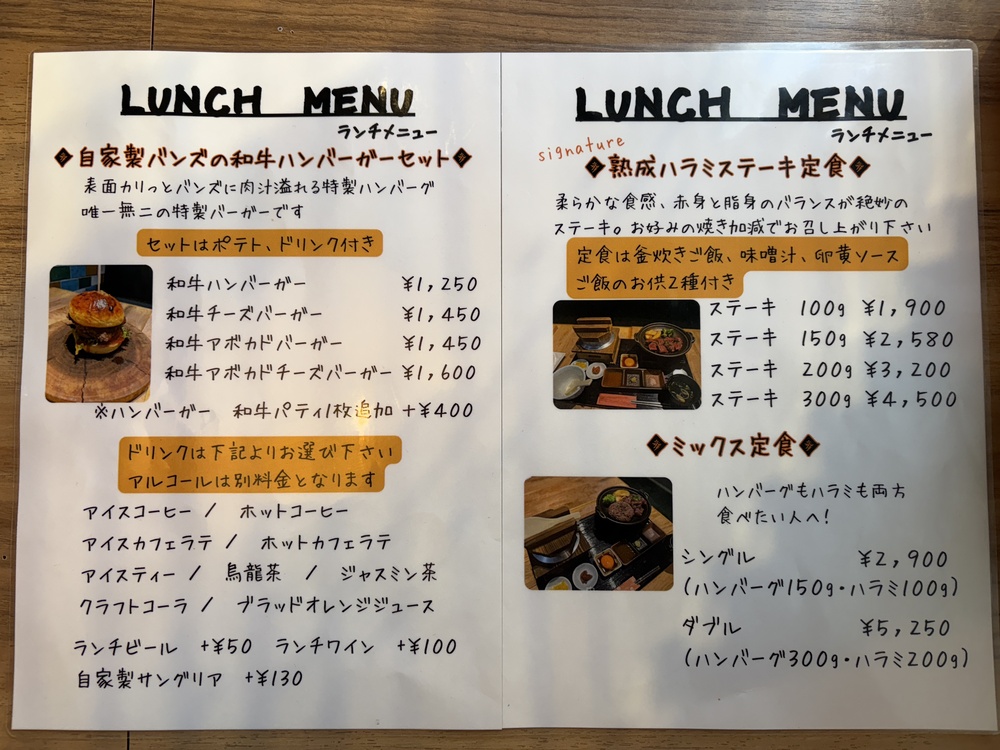 LUNCH MENU
ランチメニュー
◆自家製バンズの和牛ハンバーガーセット◆
表面カリっとバンズに肉汁溢れる特製ハンバーグ
唯一無二の特製バーガーです
セットはポテト、ドリンク付き
和牛ハンバーガー ¥1,250
和牛チーズバーガー ¥1,450
和牛アボカドバーガー ¥1,450
和牛アボカドチーズバーガー ¥1,600
※ハンバーガー 和牛パティ1枚追加 +¥400
ドリンクは下記よりお選び下さい
アルコールは別料金となります
アイスコーヒー / ホットコーヒー
アイスカフェラテ / ホットカフェラテ
アイスティー / 烏龍茶 / ジャスミン茶
クラフトコーラ / ブラッドオレンジジュース
ランチビール +¥50 ランチワイン +¥100
自家製サングリア +¥130
LUNCH MENU
ランチメニュー
signature
◆熟成ハラミステーキ定食◆
柔らかな食感、赤身と脂身のバランスが絶妙の
ステーキ。お好みの焼き加減でお召し上がり下さい
定食は釜炊きご飯、味噌汁、卵黄ソース
ご飯のお供2種付き
ステーキ 100g ¥1,900
ステーキ 150g ¥2,580
ステーキ 200g ¥3,200
ステーキ 300g ¥4,500
◆ミックス定食◆
ハンバーグもハラミも両方
食べたい人へ!
シングル ¥2,900
(ハンバーグ150g・ハラミ100g)
ダブル ¥5,250
(ハンバーグ300g・ハラミ200g)